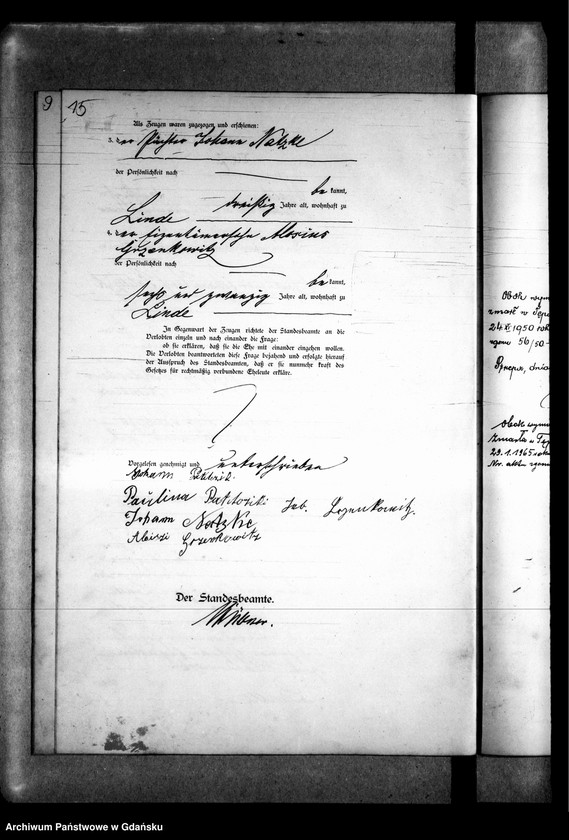 9
15
Als Zeugen waren zugezogen und erschienen:
3. der Pächter Johann Natzke
der Persönlichkeit nach
be kannt,
dreißig Jahre alt, wohnhaft zu
Linde
4. der Eigentümersohn Aloisius
Grzenkowitz
der Persönlichkeit nach
be kannt,
sechs und zwanzig Jahre alt, wohnhaft zu
Linde
In Gegenwart der Zeugen richtete der Standesbeamte an die
Verlobten einzeln und nach einander die Frage:
ob sie erklären, daß sie die Ehe mit einander eingehen wollen.
Die Verlobten beantworteten diese Frage bejahend und erfolgte hierauf
der Ausspruch des Standesbeamten, daß er sie nunmehr kraft des
Gesetzes für rechtmäßig verbundene Eheleute erkläre.
Vorgelesen genehmigt und unterschrieben
Johann
Paulina geb. Grzenkowitz.
Johann Natzke
Aloisi Grzenkowitz
Der Standesbeamte.
Obok wym
zmarł w
24 XI 1950 rok
zgonu 56/50
dnia
Obok wym
zmarła w
29.1.1965 roku
Nr. aktu zgonu
Archiwum Państwowe w Gdańsku